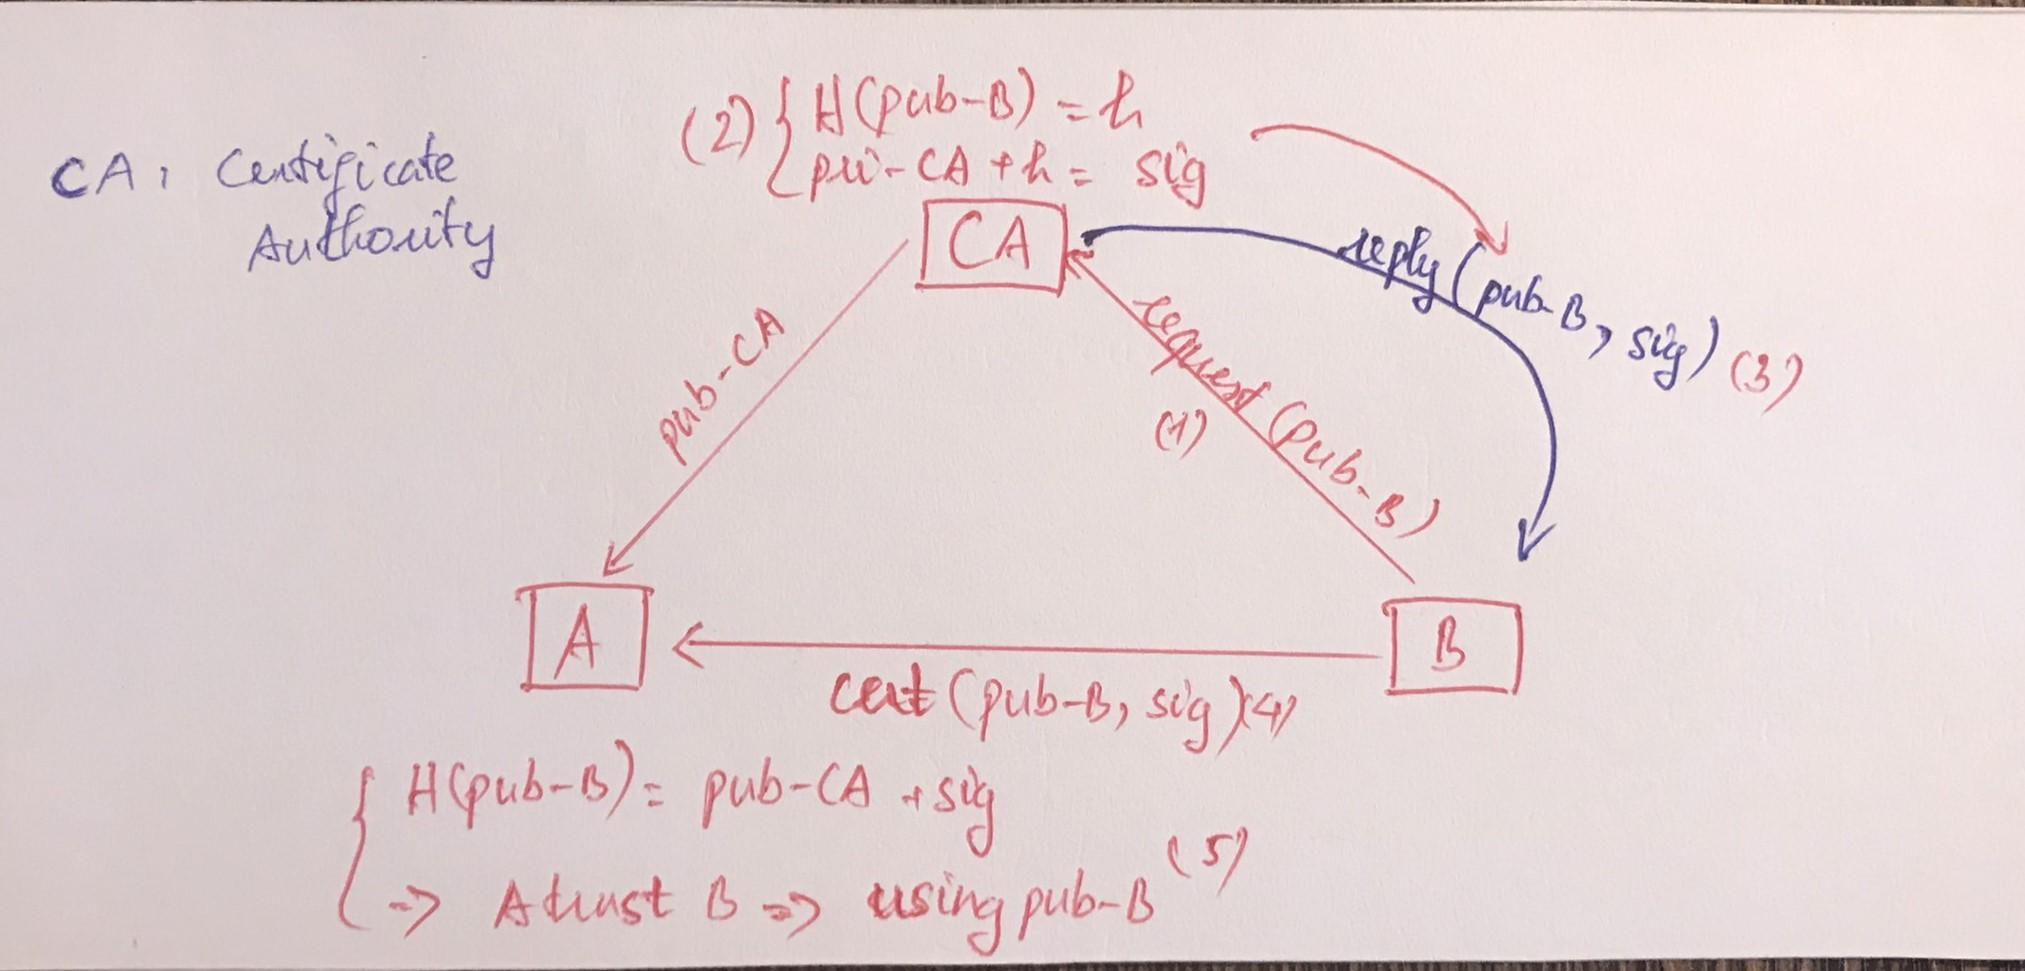 CA: Certificate
Authority
(2) { H(pub-B) = h
pri-CA + h = sig
CA
reply (pub-B, sig) (3)
request (pub-B)
(1)
pub-CA
A
B
cert (pub-B, sig) (4)
{ H(pub-B) = pub-CA + sig
=> A trust B => using pub-B (5)